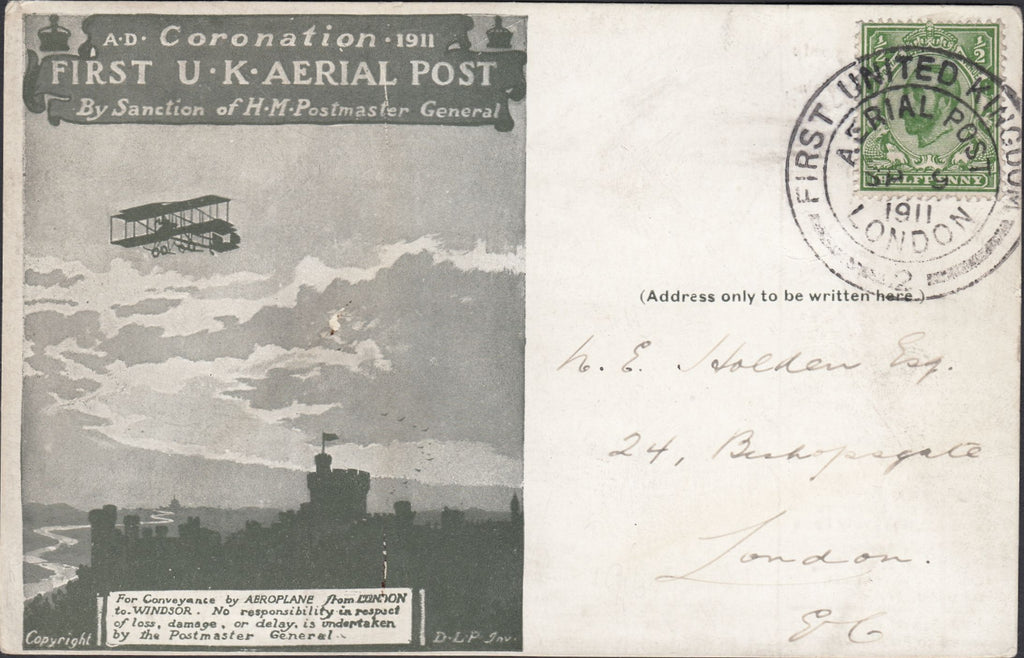 A·D· Coronation · 1911
FIRST U·K·AERIAL POST
By Sanction of H·M·Postmaster General
For Conveyance by AEROPLANE from LONDON
to WINDSOR. No responsibility in respect
of loss, damage, or delay, is undertaken
by the Postmaster General.
Copyright
D·L·P· Inv.
½ ½
HALFPENNY
FIRST UNITED KINGDOM
AERIAL POST
SP 9
1911
LONDON
2
(Address only to be written here.)
E. Holden Esq.
24, Bishopsgate
London.
E C